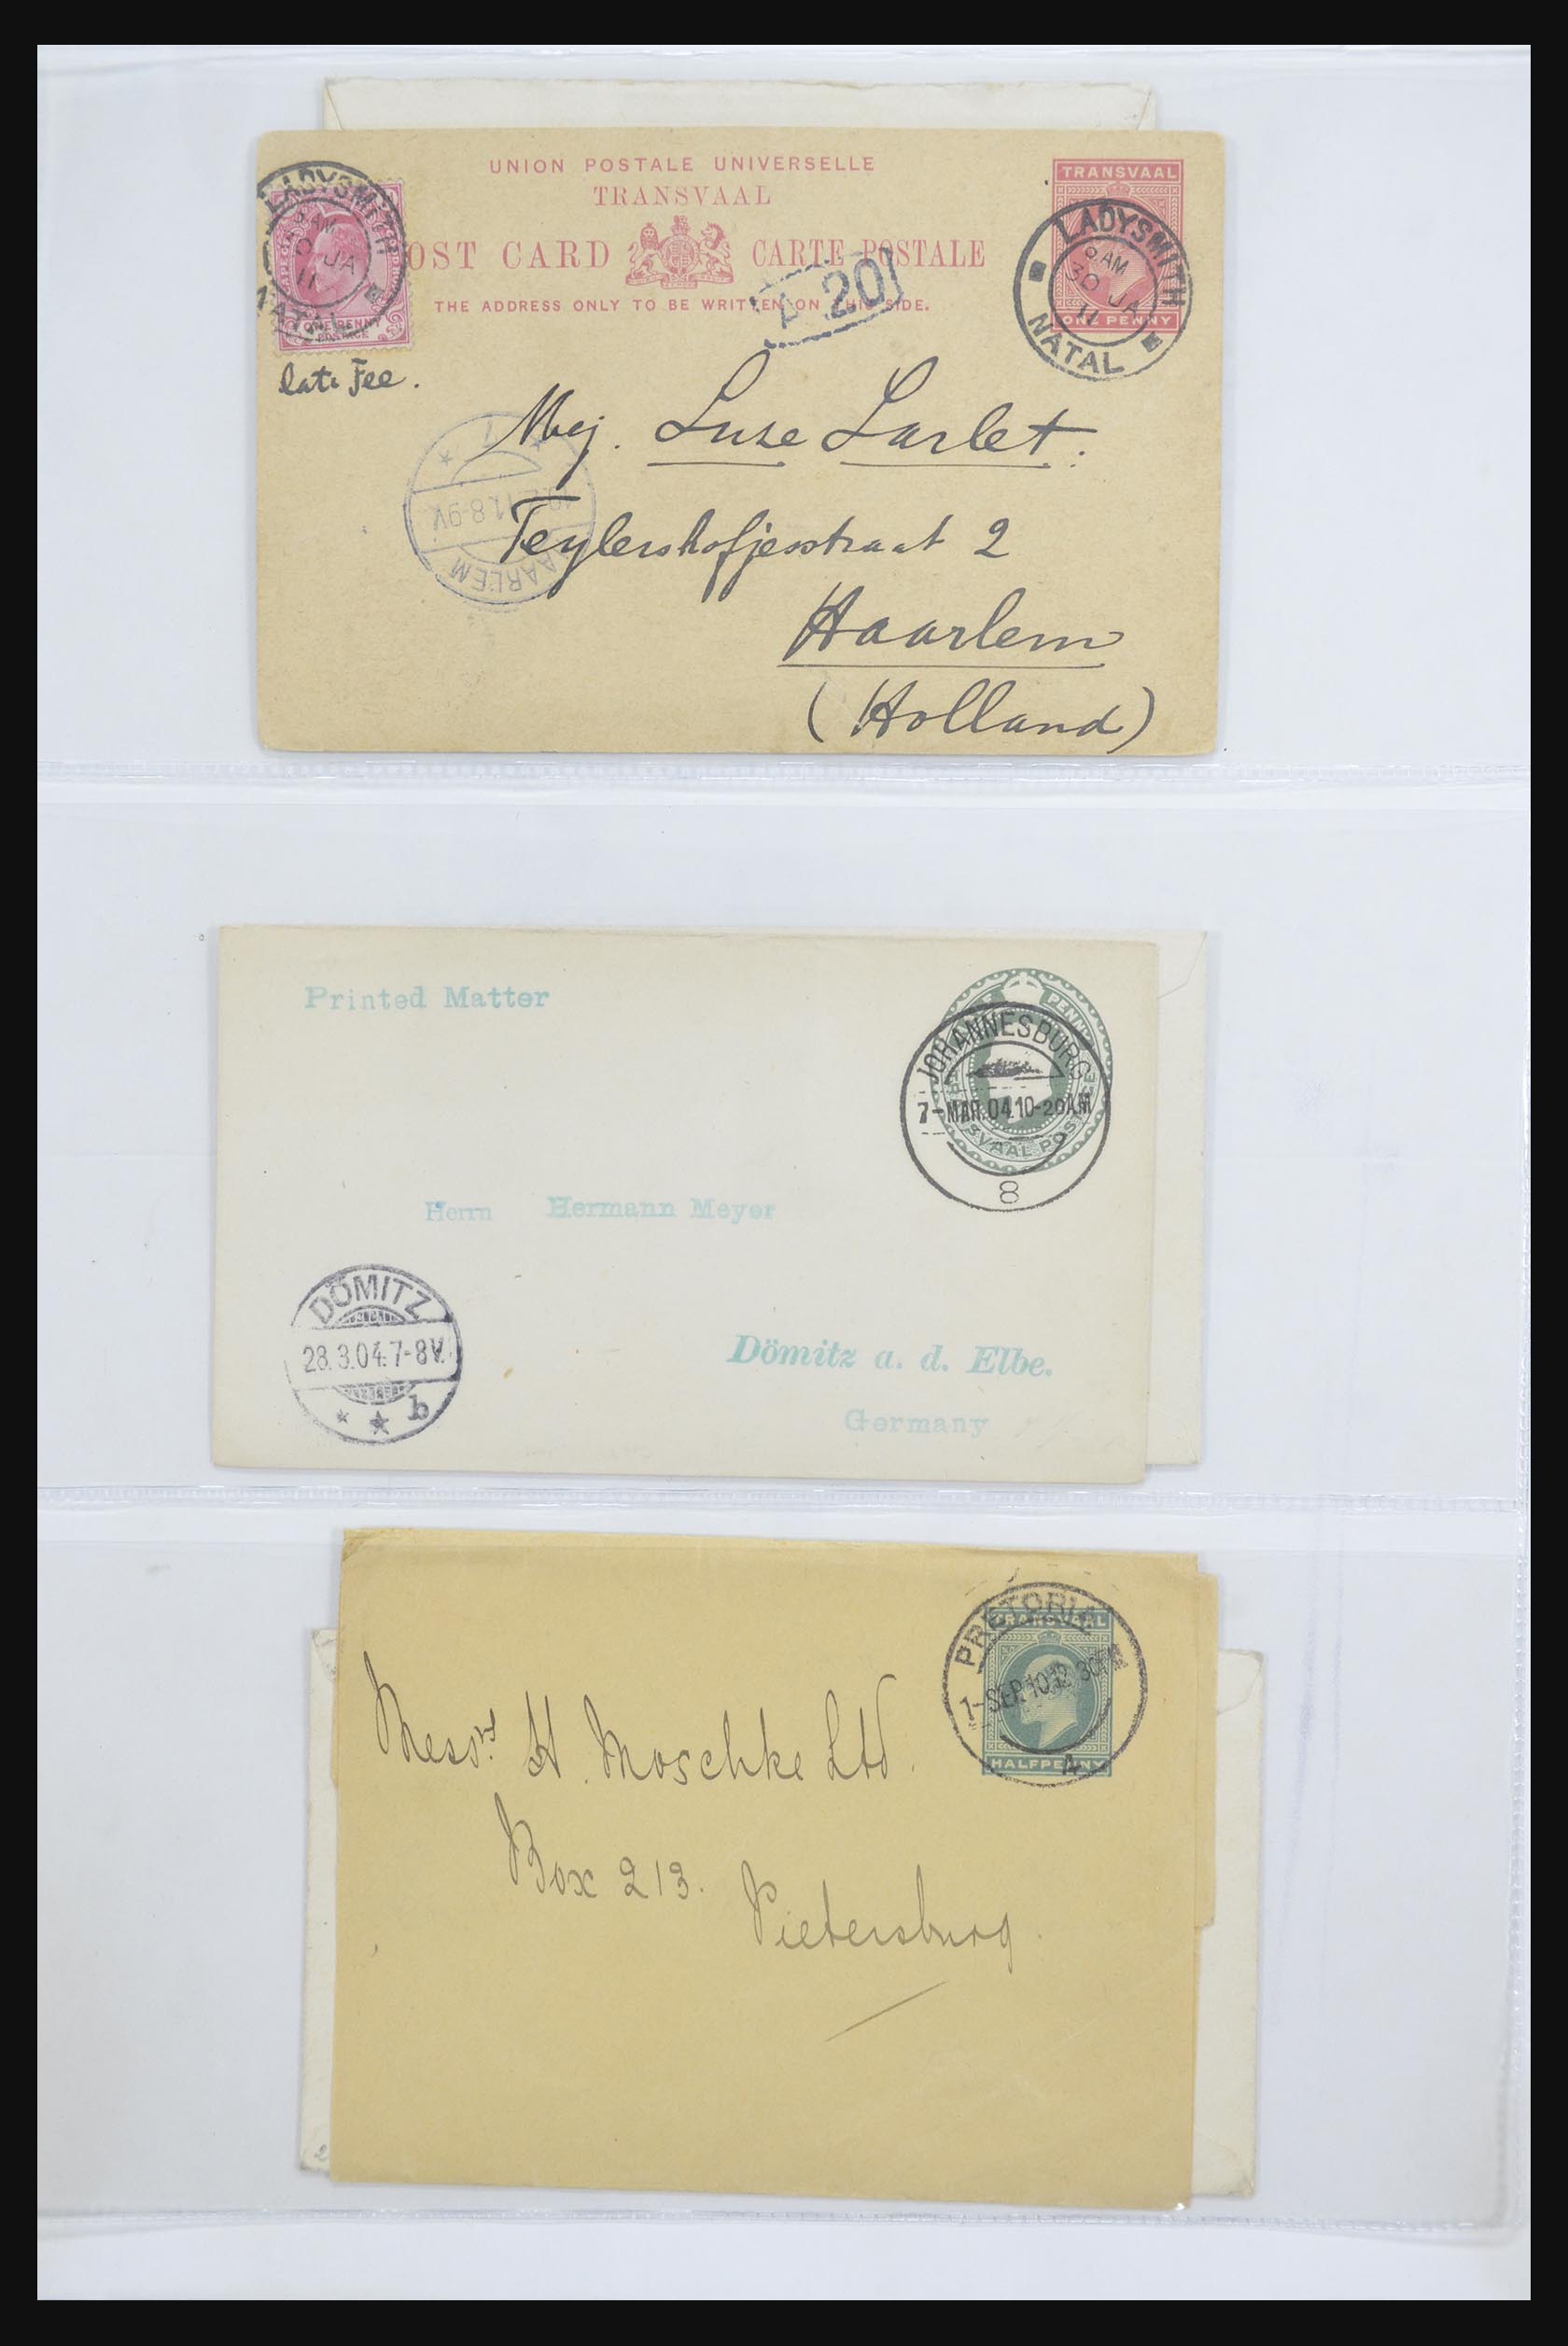 UNION POSTALE UNIVERSELLE
TRANSVAAL
POST CARD CARTE POSTALE
THE ADDRESS ONLY TO BE WRITTEN ON THIS SIDE.
TRANSVAAL
ONE PENNY
LADYSMITH
9 AM
30 JA
11
NATAL
LADYSMITH
9 AM
30 JA
11
NATAL
ONE PENNY
late Fee.
A 20
Mej. Luze Larlet.
Teylershofjesstraat 2
Haarlem
(Holland)
HAARLEM
8-9V
1
Printed Matter
PENNY
TRANSVAAL POSTAGE
JOHANNESBURG
7-MAR.04.10-20AM
8
Herrn Hermann Meyer
Dömitz a. d. Elbe.
Germany
DÖMITZ
28.3.04.7-8V.
* * b
TRANSVAAL
HALFPENNY
PRETORIA
1-SEP.10.12 30PM
4
Messrs. H. Moschke Ltd.
Box 213.
Pietersburg.